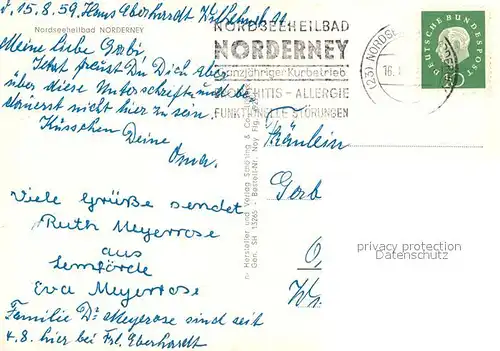 d. 15.8.59. Hans Eberhardt Wilhelmstr. 11
Nordseeheilbad NORDERNEY
Meine liebe Gabi
Jetzt freust Du Dich aber
über diese Unterschriften und be-
dauerst nicht hier zu sein.
Küsschen Deine
Oma.
Viele Grüße sendet
Ruth Meyerrose
aus
Lemförde
Eva Meyerrose
Familie Dr. Meyerose sind seit
4.8. hier bei Frl. Eberhardt
Hersteller und Verlag Schöning & Co
Gen. SH 13265 - Bestell-Nr. Ney
NORDSEEHEILBAD
NORDERNEY
ganzjähriger Kurbetrieb
BRONCHITIS - ALLERGIE
FUNKTIONELLE STÖRUNGEN
(23) NORDSE
16.
DEUTSCHE BUNDESPOST
10
Fräulein
Gab
O
Wr
privacy protection
Datenschutz